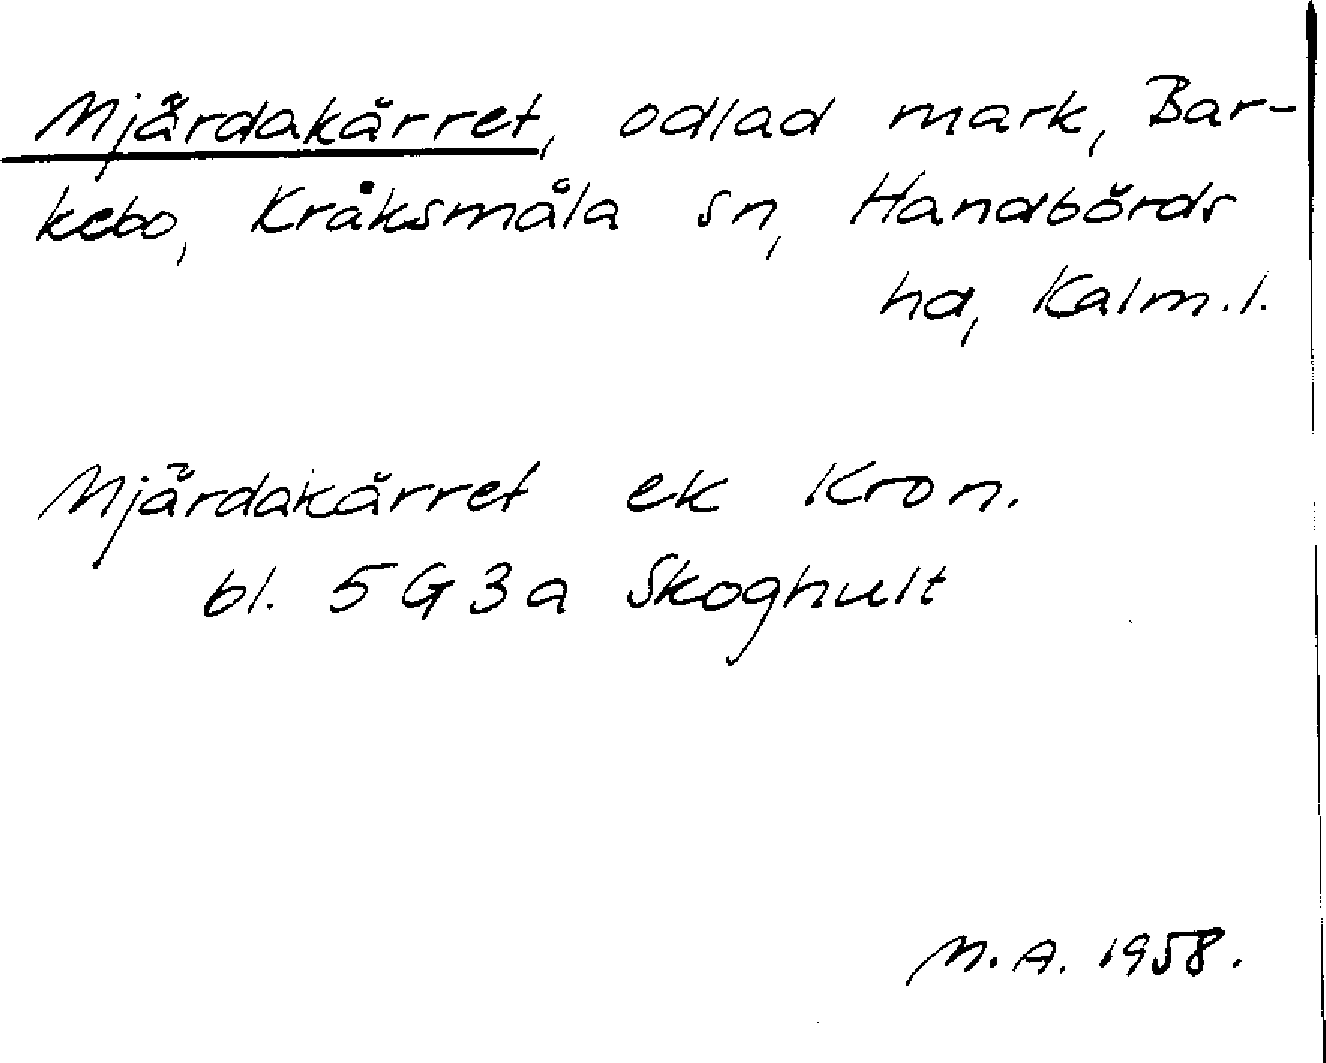 Mjärdakärret, odlad mark, Bar-
kebo, Kråksmåla sn, Handbörds
hd, Kalm.l.
Mjärdakärret ek Kron.
bl. 5G3a Skoghult
M.A. 1958.